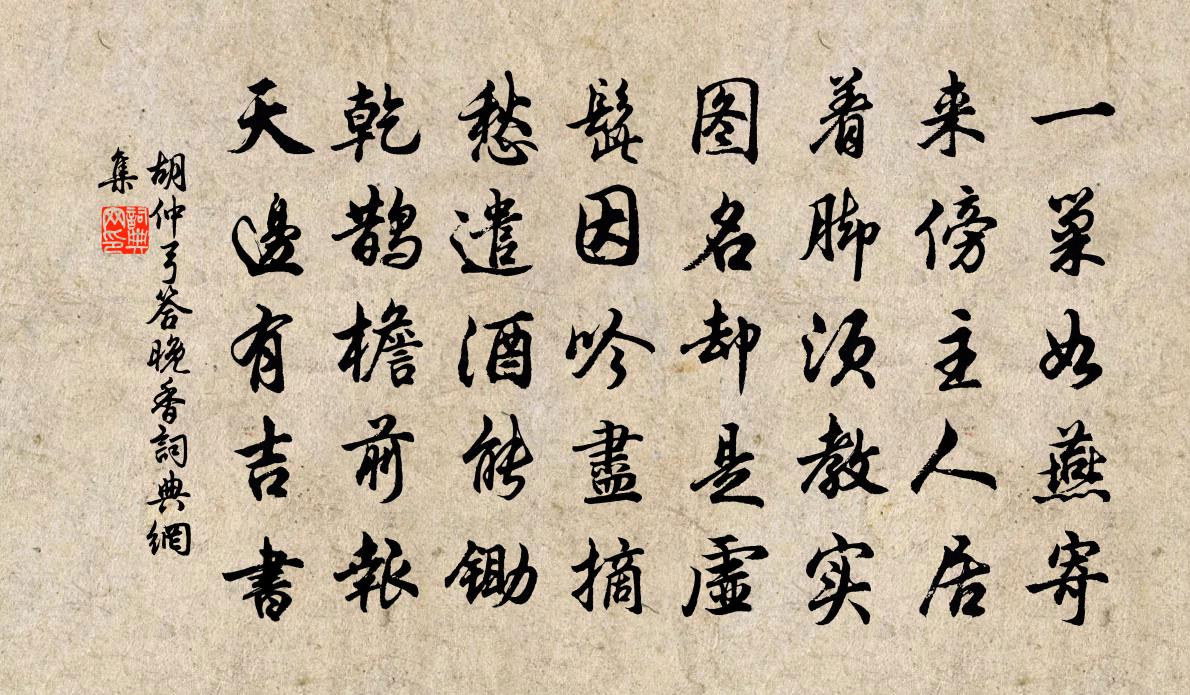 一巢如燕寄
来傍主人居
着脚须教实
图名却是虚
髭因吟盡摘
愁遣酒能鋤
乾鹊檐前報
天邊有吉書
胡仲弓答晚香詞典網
集
詞典
网印